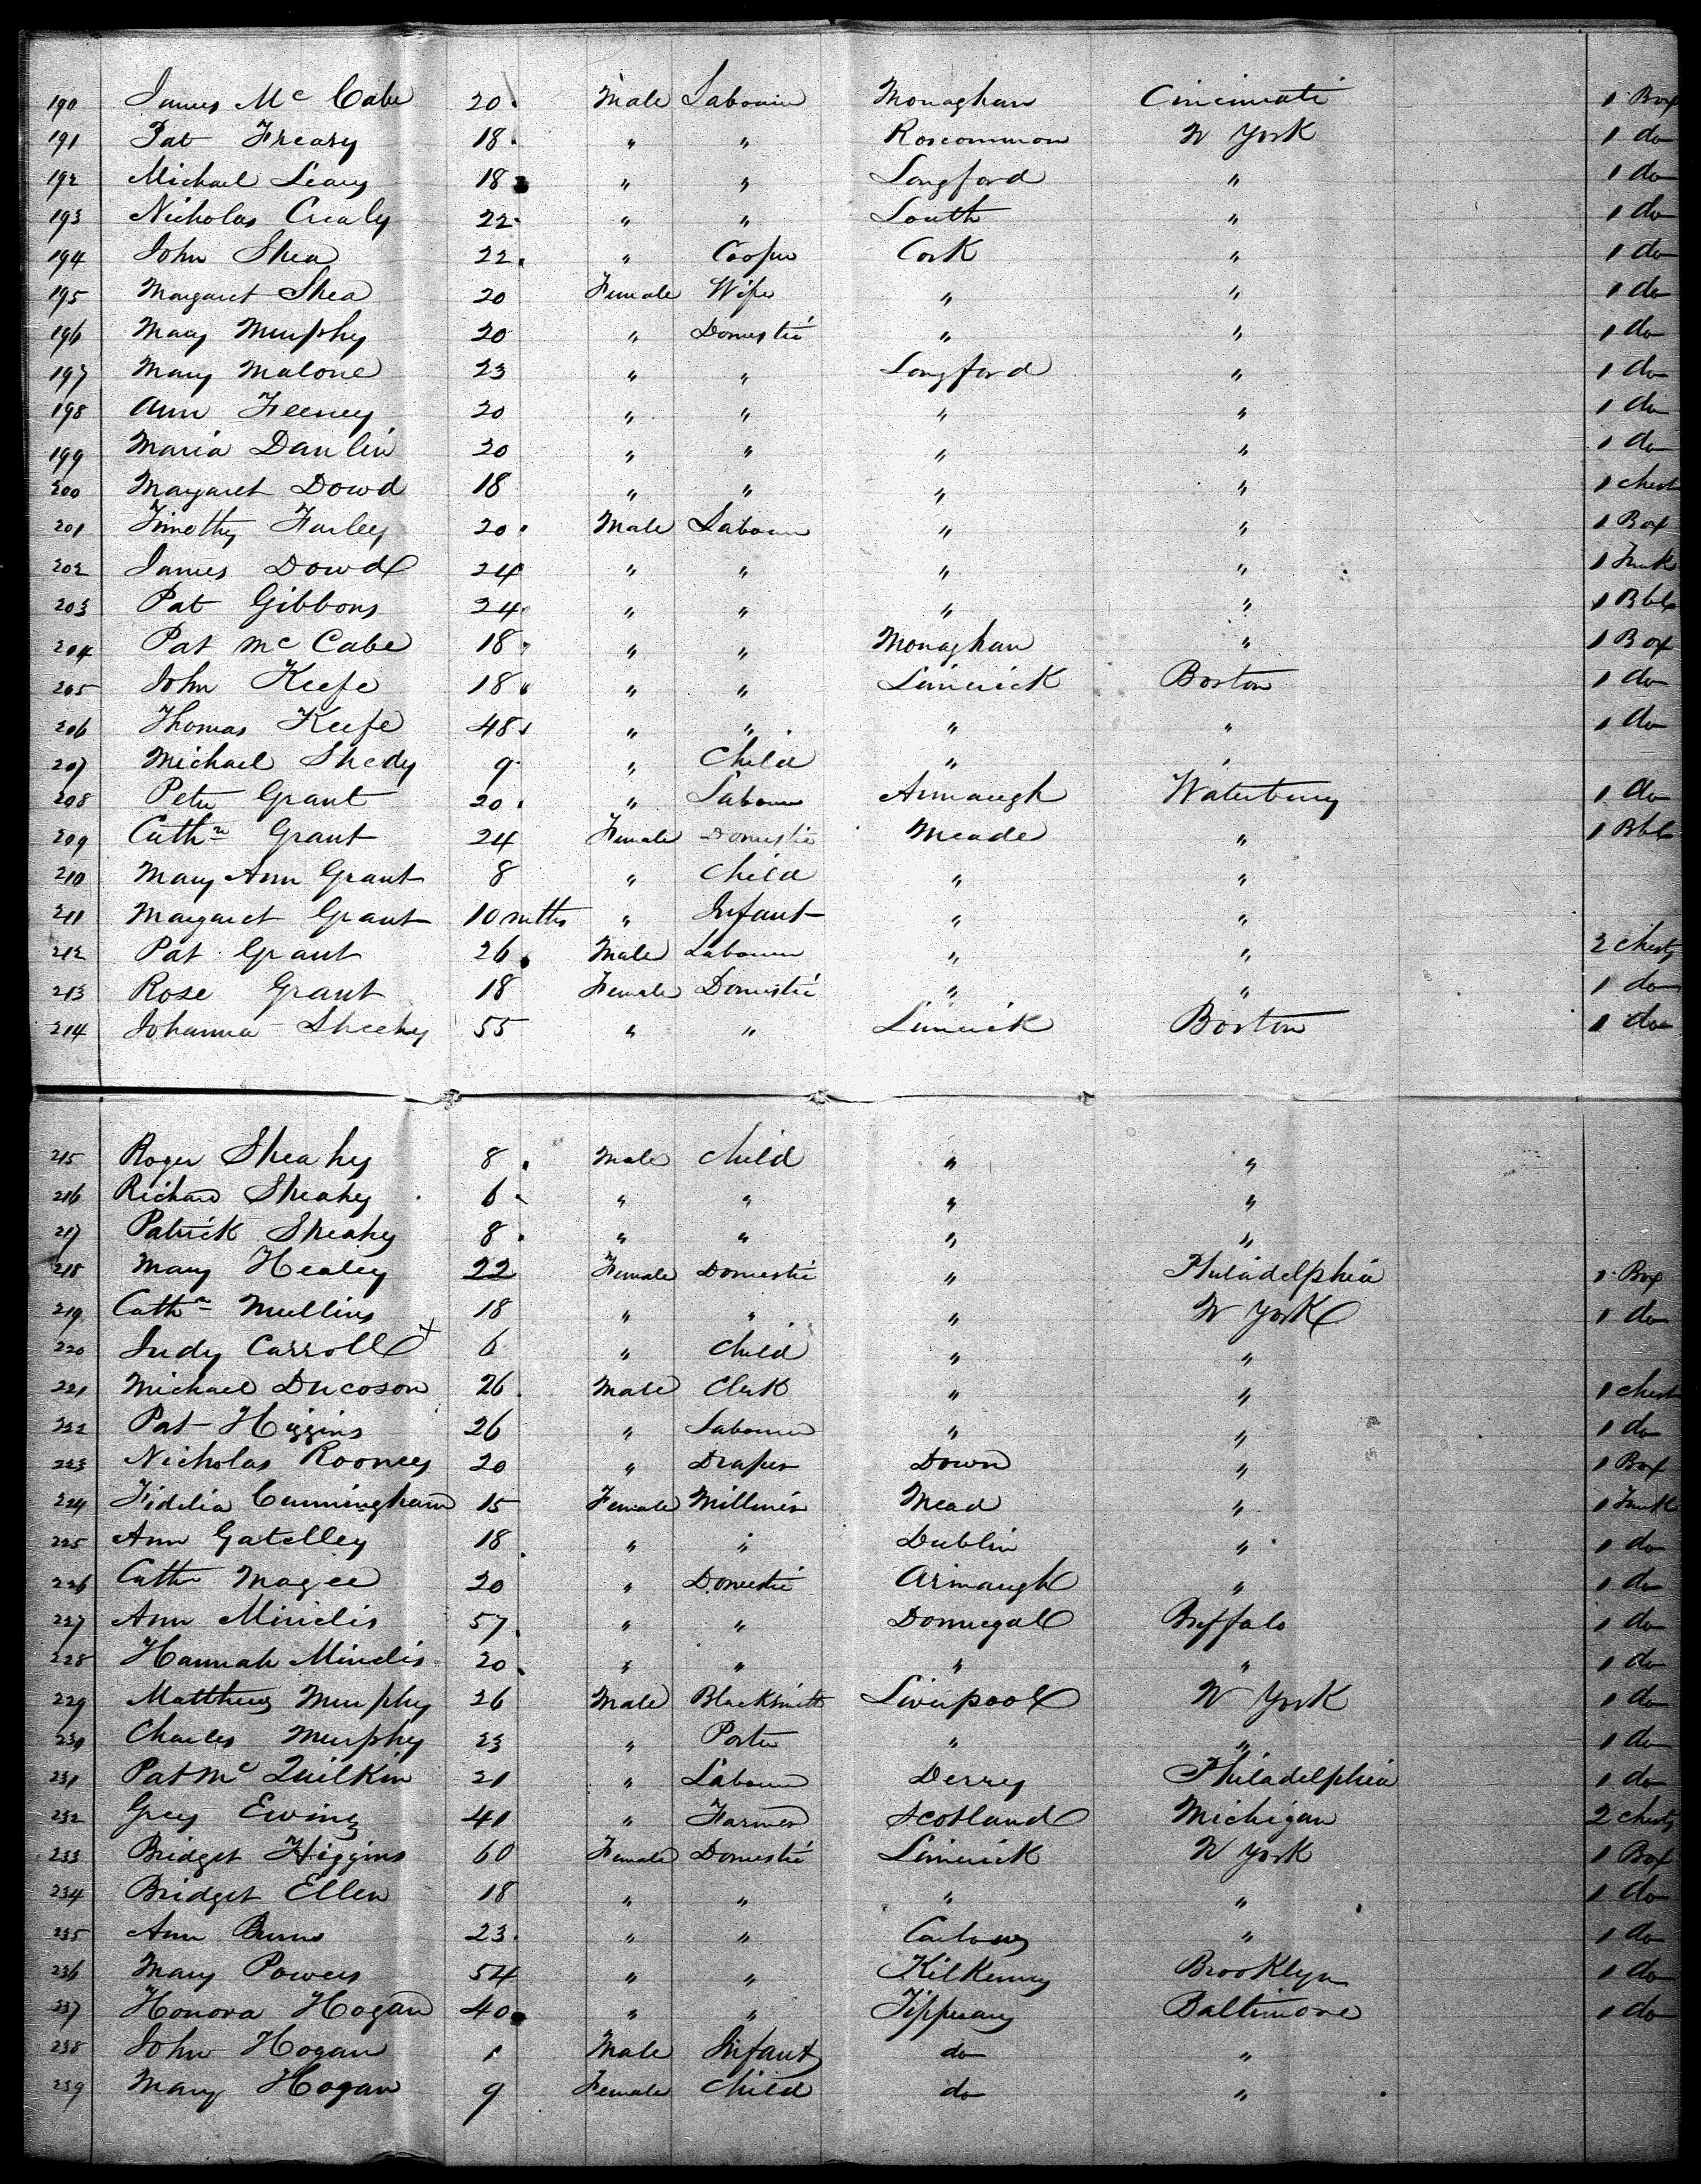 190 James Mc Cabe 20 Male Labourer Monaghan Cincinnati 1 Box
191 Pat Freary 18 " " Roscommon N York 1 do
192 Michael Leary 18 " " Longford " 1 do
193 Nicholas Crealy 22 " " Louth " 1 do
194 John Shea 22 " Cooper Cork " 1 do
195 Margaret Shea 20 Female Wife " " 1 do
196 Mary Murphy 20 " Domestic " " 1 do
197 Mary Malone 23 " " Longford " 1 do
198 Ann Feeney 20 " " " " 1 do
199 Maria Danlin 20 " " " " 1 do
200 Margaret Dowd 18 " " " " 1 chest
201 Timothy Farley 20 Male Labourer " " 1 Box
202 James Dowd 24 " " " " 1 Trunk
203 Pat Gibbons 24 " " " " 1 Bbl
204 Pat Mc Cabe 18 " " Monaghan " 1 Box
205 John Keefe 18 " " Limerick Boston 1 do
206 Thomas Keefe 48 " " " " 1 do
207 Michael Shedy 9 " Child " "
208 Peter Grant 20 " Labourer Armaugh Waterbury 1 do
209 Cathn Grant 24 Female Domestic Meade " 1 Bbl
210 Mary Ann Grant 8 " Child " "
211 Margaret Grant 10 mths " Infant " "
212 Pat Grant 26 Male Labourer " " 2 chests
213 Rose Grant 18 Female Domestic " " 1 do
214 Johanna Sheehy 55 " " Limerick Boston 1 do
215 Roger Sheahy 8 Male Child " "
216 Richard Sheahy 6 " " " "
217 Patrick Sheahy 8 " " " "
218 Mary Healey 22 Female Domestic " Philadelphia 1 Box
219 Cathn Mullins 18 " " " N York 1 do
220 Judy Carroll x 6 " Child " "
221 Michael Ducoson 26 Male Clerk " " 1 chest
222 Pat Higgins 26 " Labourer " " 1 do
223 Nicholas Rooney 20 " Draper Down " 1 Box
224 Fidelia Cunningham 15 Female Milliner Mead " 1 Trunk
225 Ann Gatelley 18 " " Dublin " 1 do
226 Cathn Magee 20 " Domestic Armaugh " 1 do
227 Ann Mindis 57 " " Donnegal Buffalo 1 do
228 Hannah Mindis 20 " " " " 1 do
229 Matthew Murphy 26 Male Blacksmith Liverpool N York 1 do
230 Charles Murphy 23 " Porter " " 1 do
231 Pat Mc Quilkin 21 " Labourer Derry Philadelphia 1 do
232 Grey Ewing 41 " Farmer Scotland Michigan 2 chests
233 Bridget Higgins 60 Female Domestic Limerick N York 1 Box
234 Bridget Ellen 18 " " " " 1 do
235 Ann Burns 23 " " Carlow " 1 do
236 Mary Powers 54 " " Kilkenny Brooklyn 1 do
237 Honora Hogan 40 " " Tipperary Baltimore 1 do
238 John Hogan 1 Male Infant do "
239 Mary Hogan 9 Female Child do "